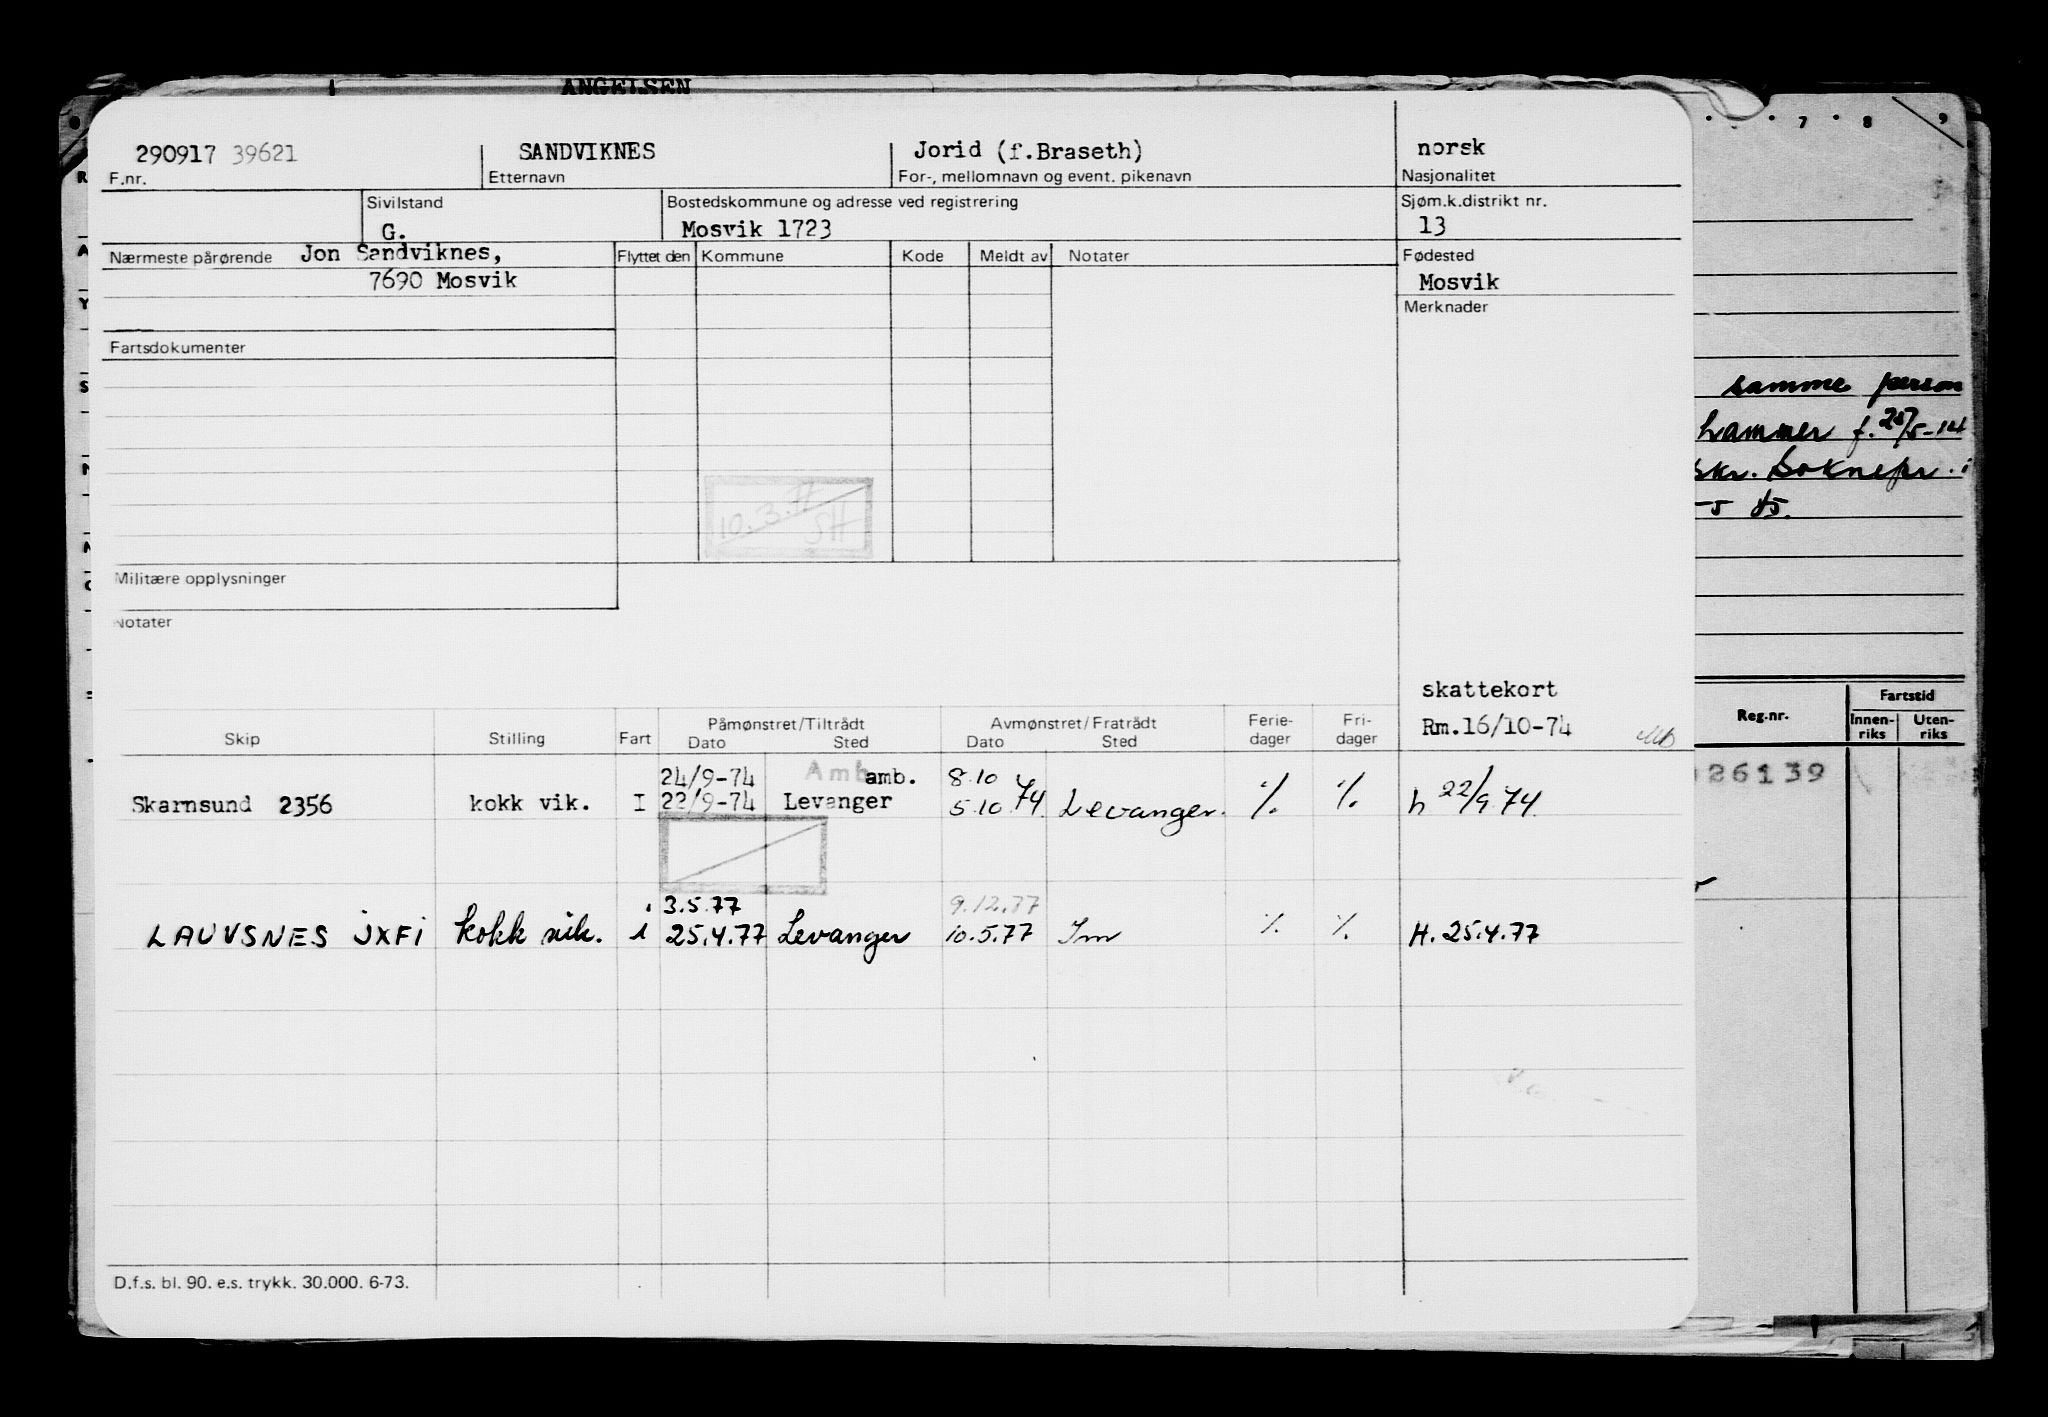 ANGELSEN
290917 39621 SANDVIKNES Jorid (f.Braseth) norsk
F.nr. Etternavn For-, mellomnavn og event. pikenavn Nasjonalitet
Sivilstand Bostedskommune og adresse ved registrering Sjøm.k.distrikt nr.
G. Mosvik 1723 13
Nærmeste pårørende Jon Sandviknes, Flyttet den Kommune Kode Meldt av Notater Fødested
7690 Mosvik Mosvik
Merknader
Fartsdokumenter
10.3.77
SH
Militære opplysninger
Notater
skattekort
Rm.16/10-74
Skip Stilling Fart Påmønstret/Tiltrådt Avmønstret/Fratrådt Ferie-dager Fri-dager
Dato Sted Dato Sted
24/9-74 Amb amb. 8.10
Skarnsund 2356 kokk vik. I 22/9-74 Levanger 5.10 74. Levanger. % % h 22/9 74.
i 3.5.77 9.12.77
LAUVSNES JXFI kokk vik. i 25.4.77 Levanger 10.5.77 Im % % H. 25.4.77
D.f.s. bl. 90. e.s. trykk. 30.000. 6-73.
7 8 9
samme person
hammer f. 25/5-14
skr. Soknepr. i
Reg.nr. Fartstid
Innen-riks Uten-riks
26139